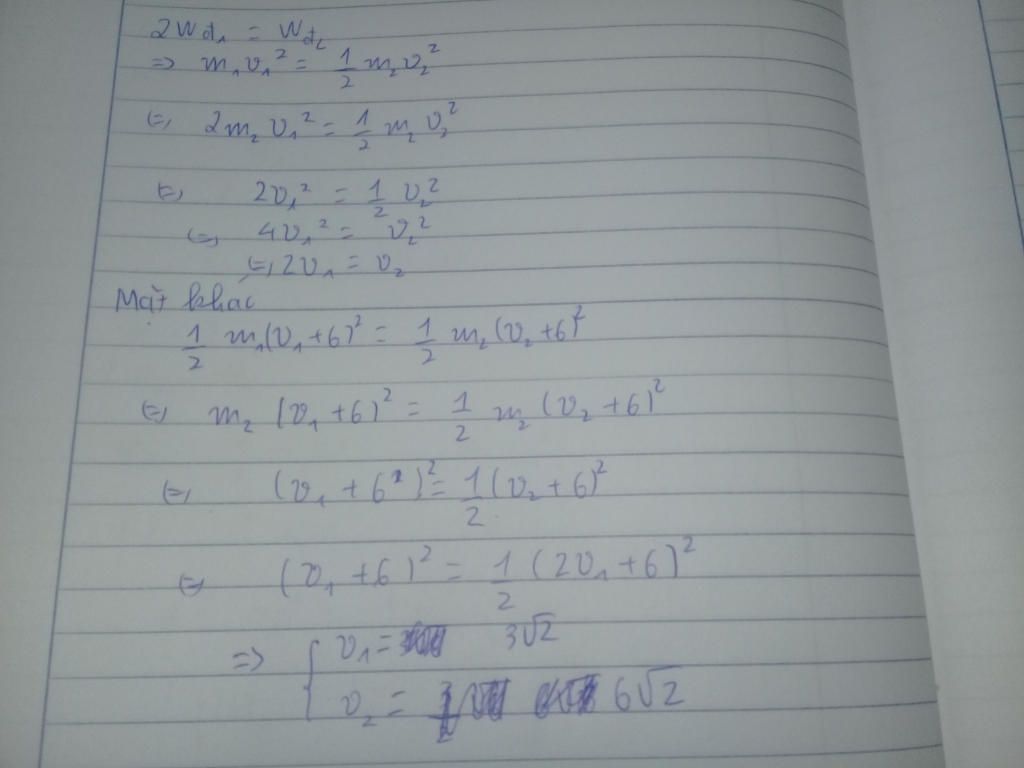 2Wđ₁ = Wđ₂
=> m₁v₁² = 1/2 m₂v₂²
<=> 2m₂v₁² = 1/2 m₂v₂²
<=> 2v₁² = 1/2 v₂²
<=> 4v₁² = v₂²
<=> 2v₁ = v₂
Mặt khác
1/2 m₁(v₁+6)² = 1/2 m₂(v₂+6)²
<=> m₂(v₁+6)² = 1/2 m₂(v₂+6)²
<=> (v₁+6)² = 1/2(v₂+6)²
<=> (v₁+6)² = 1/2(2v₁+6)²
=> { v₁ = 3√2
v₂ = 6√2